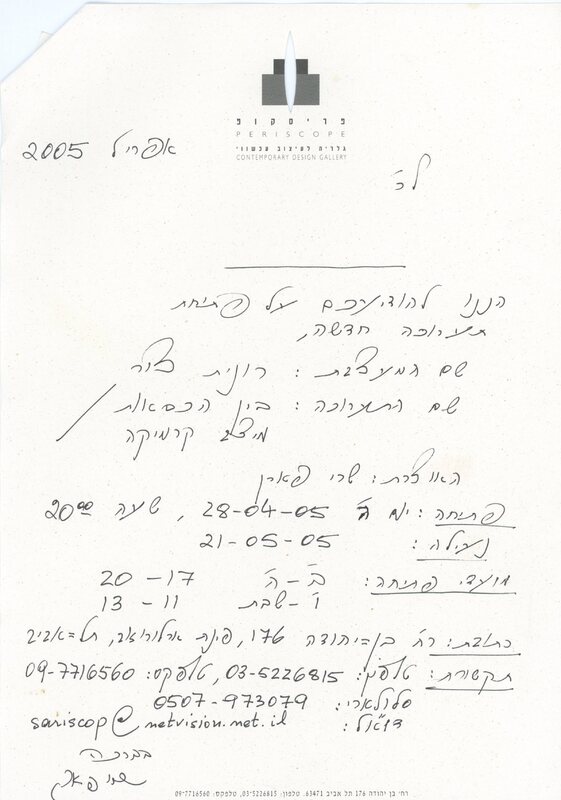 פריסקופ
PERISCOPE
גלריה לעיצוב עכשווי
CONTEMPORARY DESIGN GALLERY
אפריל 2005
לכ'
הננו להודיעכם על פתיחת
תערוכה חדשה,
שם המעצבת: רונית צור
שם התערוכה: בין הכסאות
מיצב קרמיקה
האוצרת: שרי פארן
פתיחה: יום ה' 28-04-05, שעה 20⁰⁰
נעילה: 21-05-05
מועדי פתיחה: ב'-ה' 17-20
ו'-שבת 11-13
כתובת: רח' בן-יהודה 176, פינת ארלוזורוב, תל-אביב
תקשורת: טלפון: 03-5226815, טלפקס: 09-7716560
סלולארי: 0507-973079
דוא"ל: sariscop@netvision.net.il
בברכה
שרי פארן
רח' בן יהודה 176 תל אביב 63471. טלפון: 03-5226815, טלפקס: 09-7716560